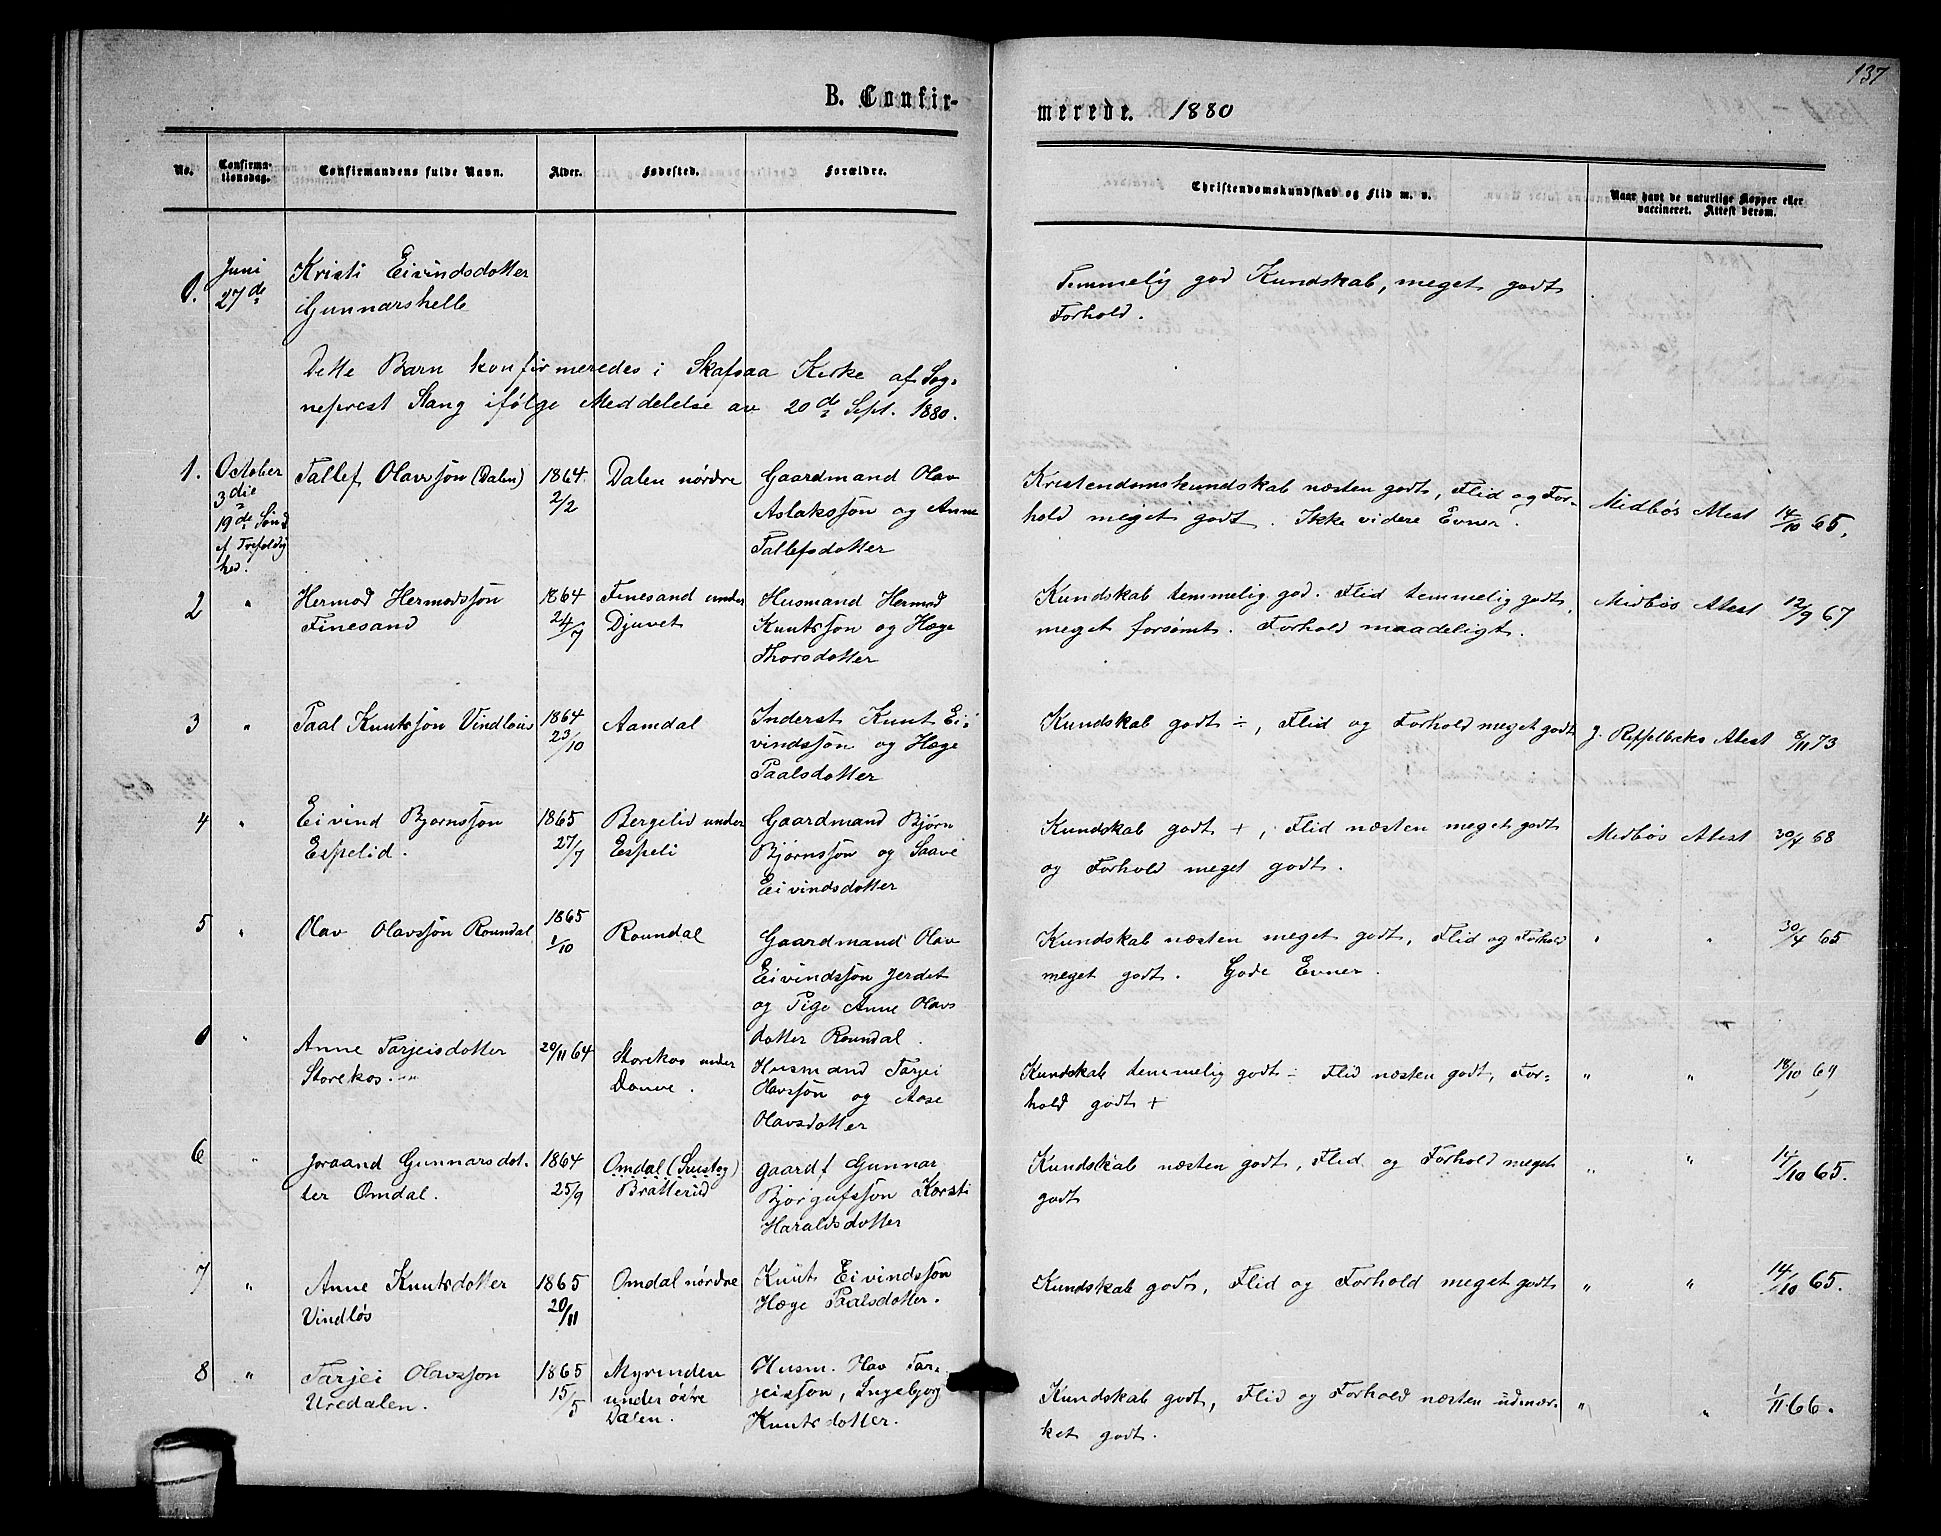 137
B. Confir-
merede. 1880
No.
Confirma-
tionsdag.
Confirmandens fulde Navn.
Alder.
Fødested.
Forældre.
Christendomskundskab og Flid m. v.
Naar havt de naturlige Kopper eller
vaccineret. Attest derom.
0. Juni 27de
Kristi Eivindsdotter
Gunnarshelle
Temmelig god Kundskab, meget godt
Forhold.
Dette Barn konfirmeredes i Skafsaa Kirke af Sog-
neprest Stang ifølge Meddelelse av 20de Sept. 1880.
1. October
3die
19de Sønd
Tallef Olavssøn (Dalen)
1864
2/2
Dalen nørdre
Gaardmand Olav
Aslakssøn og Anne
Tallefsdotter
Kristendomskundskab næsten godt, Flid og For-
hold meget godt. Ikke videre Evner.
Midbøs Atest 14/10 65.
2 "
Hermod Hermodssøn
Finesand
1864
24/7
Finesand under
Djuvet
Husmand Hermod
Knutssøn og Hæge
Thorsdotter
Kundskab temmelig god. Flid temmelig godt,
meget forsømt. Forhold maadeligt.
Midbøs Atest 12/9 67
3 "
Paal Knutssøn Vindløus
1864
23/10
Aamdal
Inderst Knut Ei-
vindssøn og Hæge
Paalsdotter
Kundskab godt ÷, Flid og Forhold meget godt
J. Reppelbeks Atest 8/11 73
4 "
Eivind Bjørnssøn
Espelid.
1865
27/7
Bergelid under
Espeli
Gaardmand Bjørn
Bjørnssøn og Saave
Eivindsdotter
Kundskab godt +, Flid næsten meget godt
og Forhold meget godt.
Midbøs Atest 30/4 68
5 "
Olav Olavssøn Roundal
1865
1/10
Roundal
Gaardmand Olav
Eivindssøn Jerdet
og Pige Anne Olavs
dotter Roundal.
Kundskab næsten meget godt, Flid og Forhold
meget godt. Gode Evner.
" " 30/4 65
0 "
Anne Tarjeisdotter
Storekos.
20/11 64
Storekos under
Douve.
Husmand Tarjei
Olavssøn og Aase
Olavsdotter
Kundskab temmelig godt ÷ Flid næsten godt, For-
hold godt +
" " 18/10 69
6 "
Joraand Gunnarsdot-
ter Omdal.
1864
25/9
Omdal (Sustog)
Bratterud
gaardf Gunnar
Bjørgufssøn Korsti
Haraldsdotter
Kundskab næsten godt, Flid og Forhold meget
godt
" " 14/10 65.
7 "
Anne Knutsdotter
Vindløs
1865
20/11
Omdal nørdre
Knut Eivindssøn
Hæge Paalsdotter.
Kundskab godt, Flid og Forhold meget godt
" " 14/10 65.
8 "
Tarjei Olavssøn
Uredalen.
1865
15/5
Myrmden
under østre
Dalen.
Husm. Olav Tar-
jeissøn, Ingebjørg
Knutsdotter.
Kundskab godt, Flid og Forhold næsten udmær-
ket godt.
" " 1/11 66.